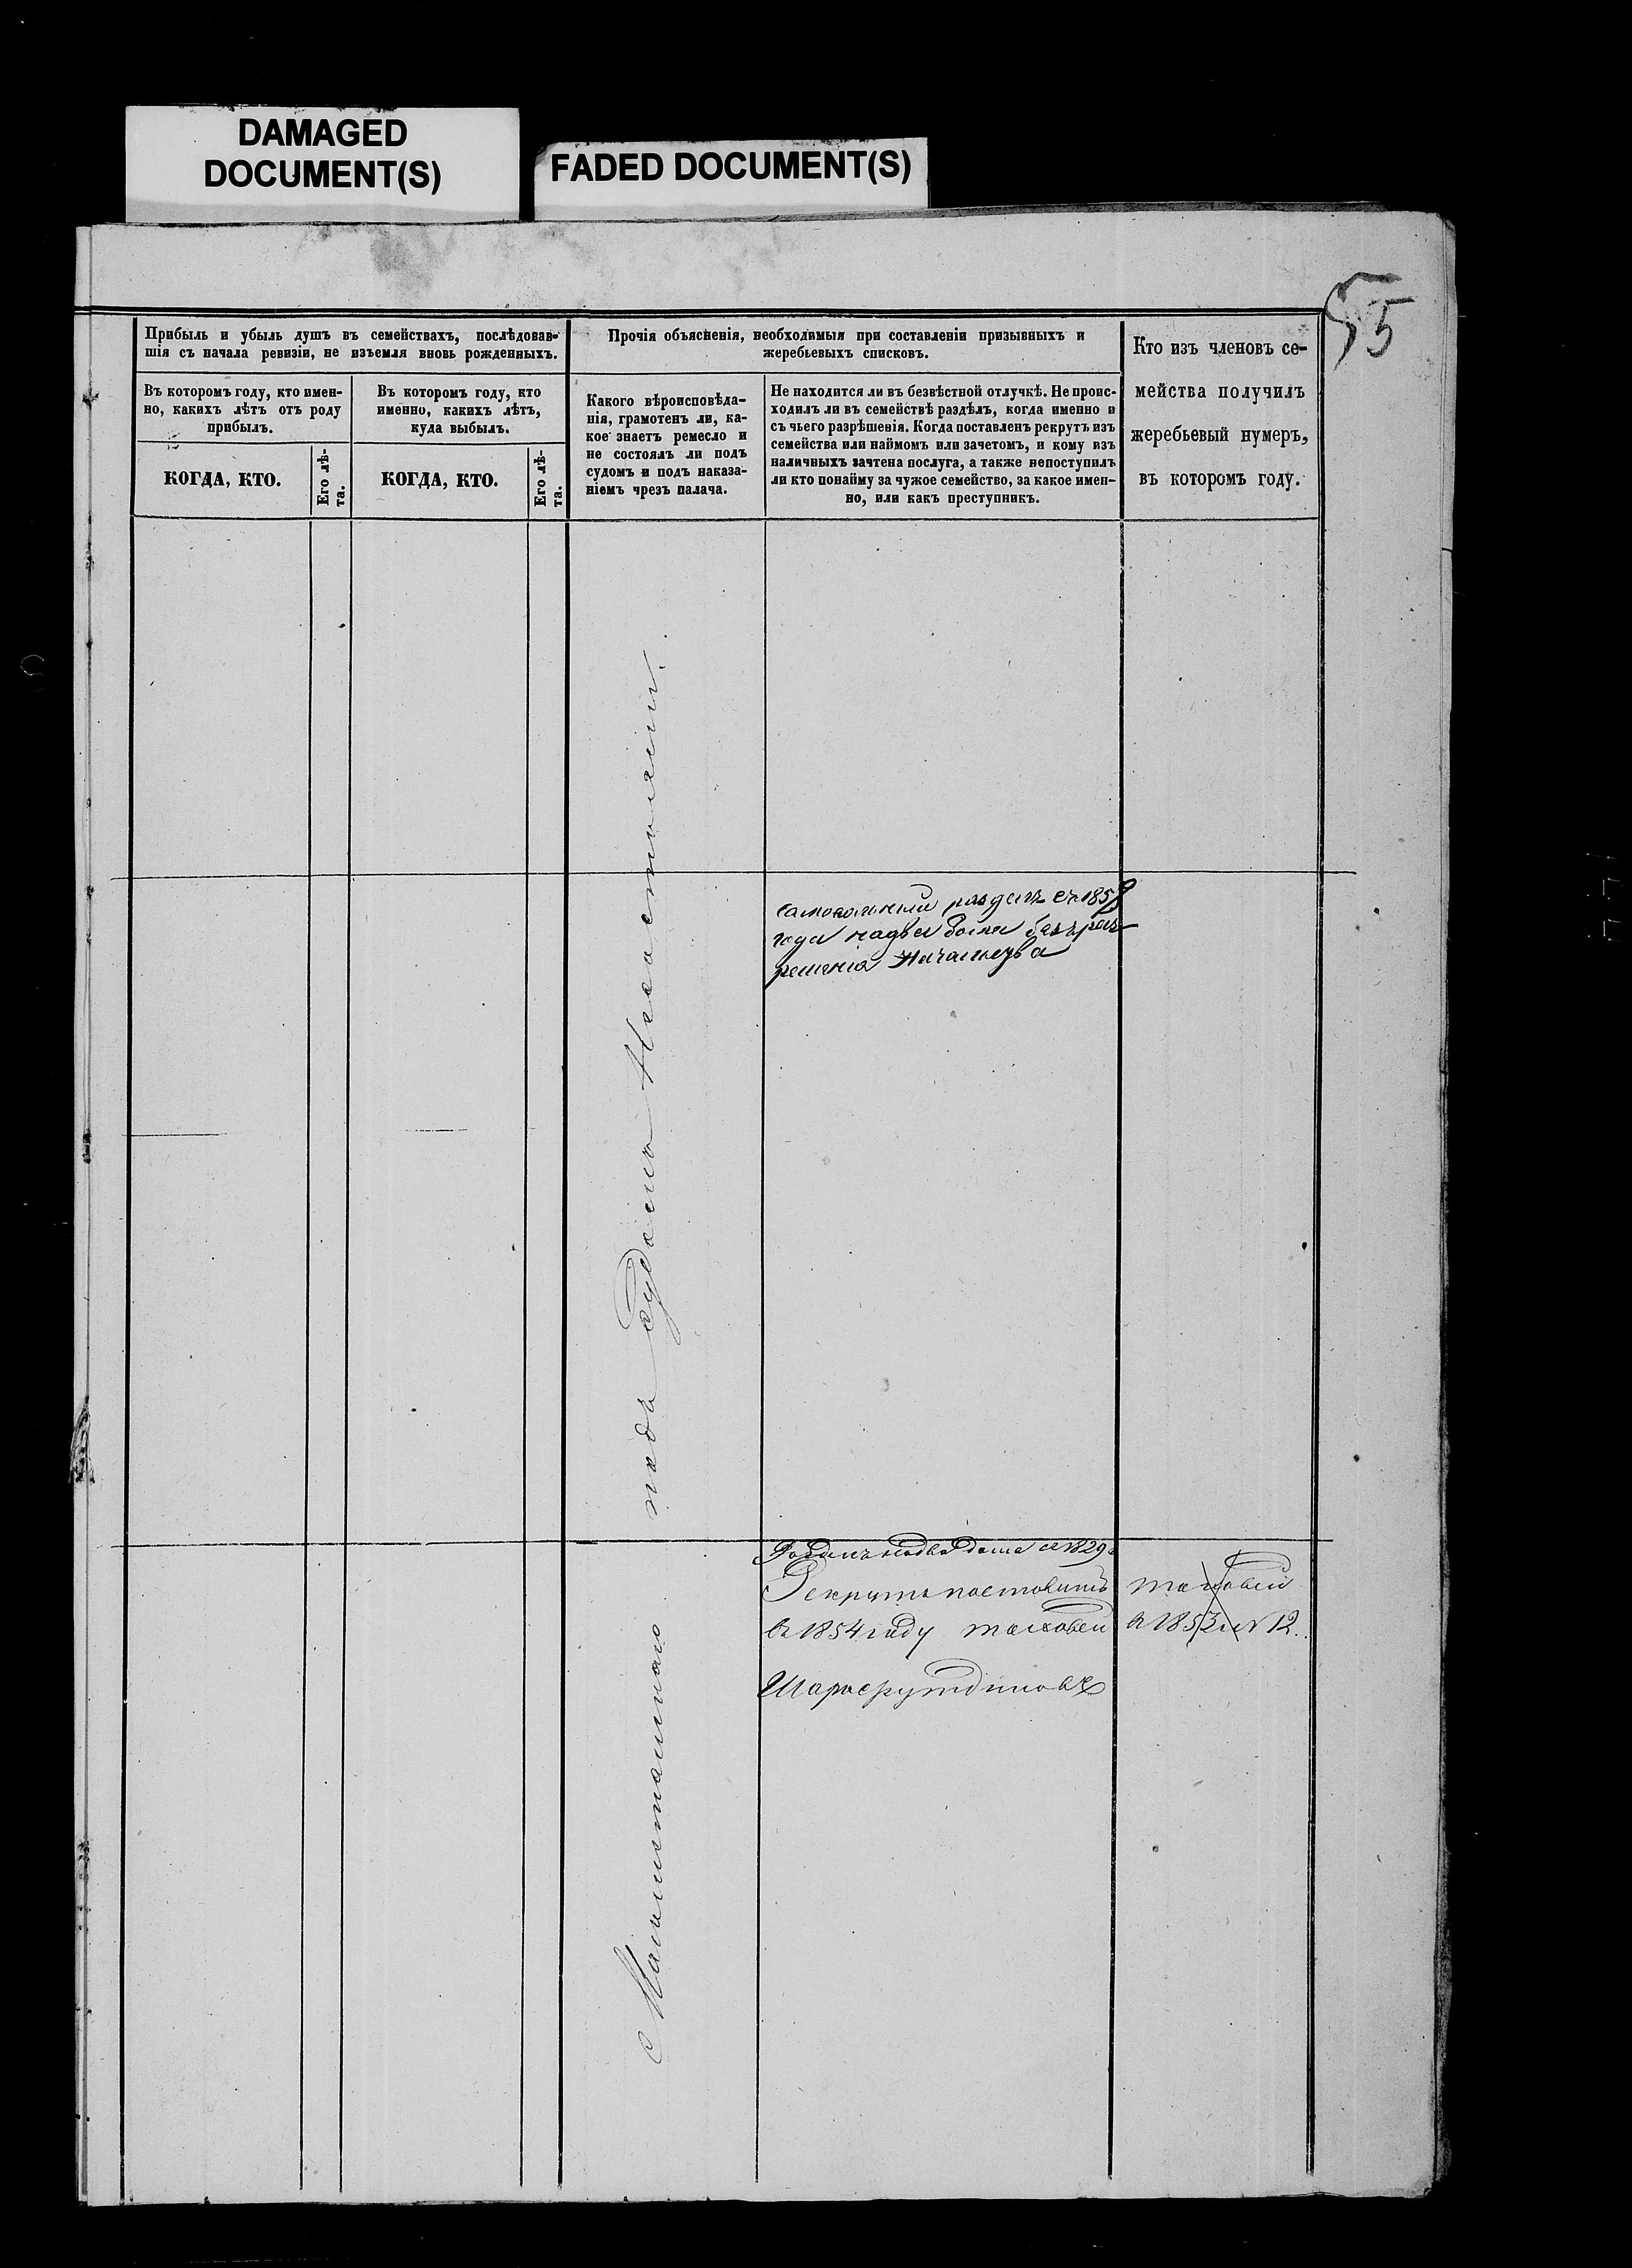 DAMAGED
DOCUMENT(S)
FADED DOCUMENT(S)
55
Прибыль и убыль душъ въ семействахъ, послѣдовав-
шія съ начала ревизіи, не изъемля вновь рожденныхъ.
Прочія объясненія, необходимыя при составленіи призывныхъ и
жеребьевыхъ списковъ.
Кто изъ членовъ се-
мейства получилъ
жеребьевый нумеръ,
въ которомъ году.
Въ которомъ году, кто имен-
но, какихъ лѣтъ отъ роду
прибылъ.
Въ которомъ году, кто
именно, какихъ лѣтъ,
куда выбылъ.
Какого вѣроисповѣда-
нія, грамотенъ ли, ка-
кое знаетъ ремесло и
не состоялъ ли подъ
судомъ и подъ наказа-
ніемъ чрезъ палача.
Не находится ли въ безвѣстной отлучкѣ. Не проис-
ходилъ ли въ семействѣ раздѣлъ, когда именно и
съ чьего разрѣшенія. Когда поставленъ рекрутъ изъ
семейства или наймомъ или зачетомъ, и кому изъ
наличныхъ зачтена послуга, а также непоступилъ
ли кто понайму за чужое семейство, за какое имен-
но, или какъ преступникъ.
КОГДА, КТО.
Его лѣ-
та.
КОГДА, КТО.
Его лѣ-
та.
Магометанскаго подъ судомъ Несостояли.
самовольный раздѣлъ съ 1858
года надва дома безъ раз
решенія Начальства
Разделъ надва дома съ 1829
Рекрутъ поставленъ
въ 1854 году
Шарафутдиновъ
в 1853 N 12.